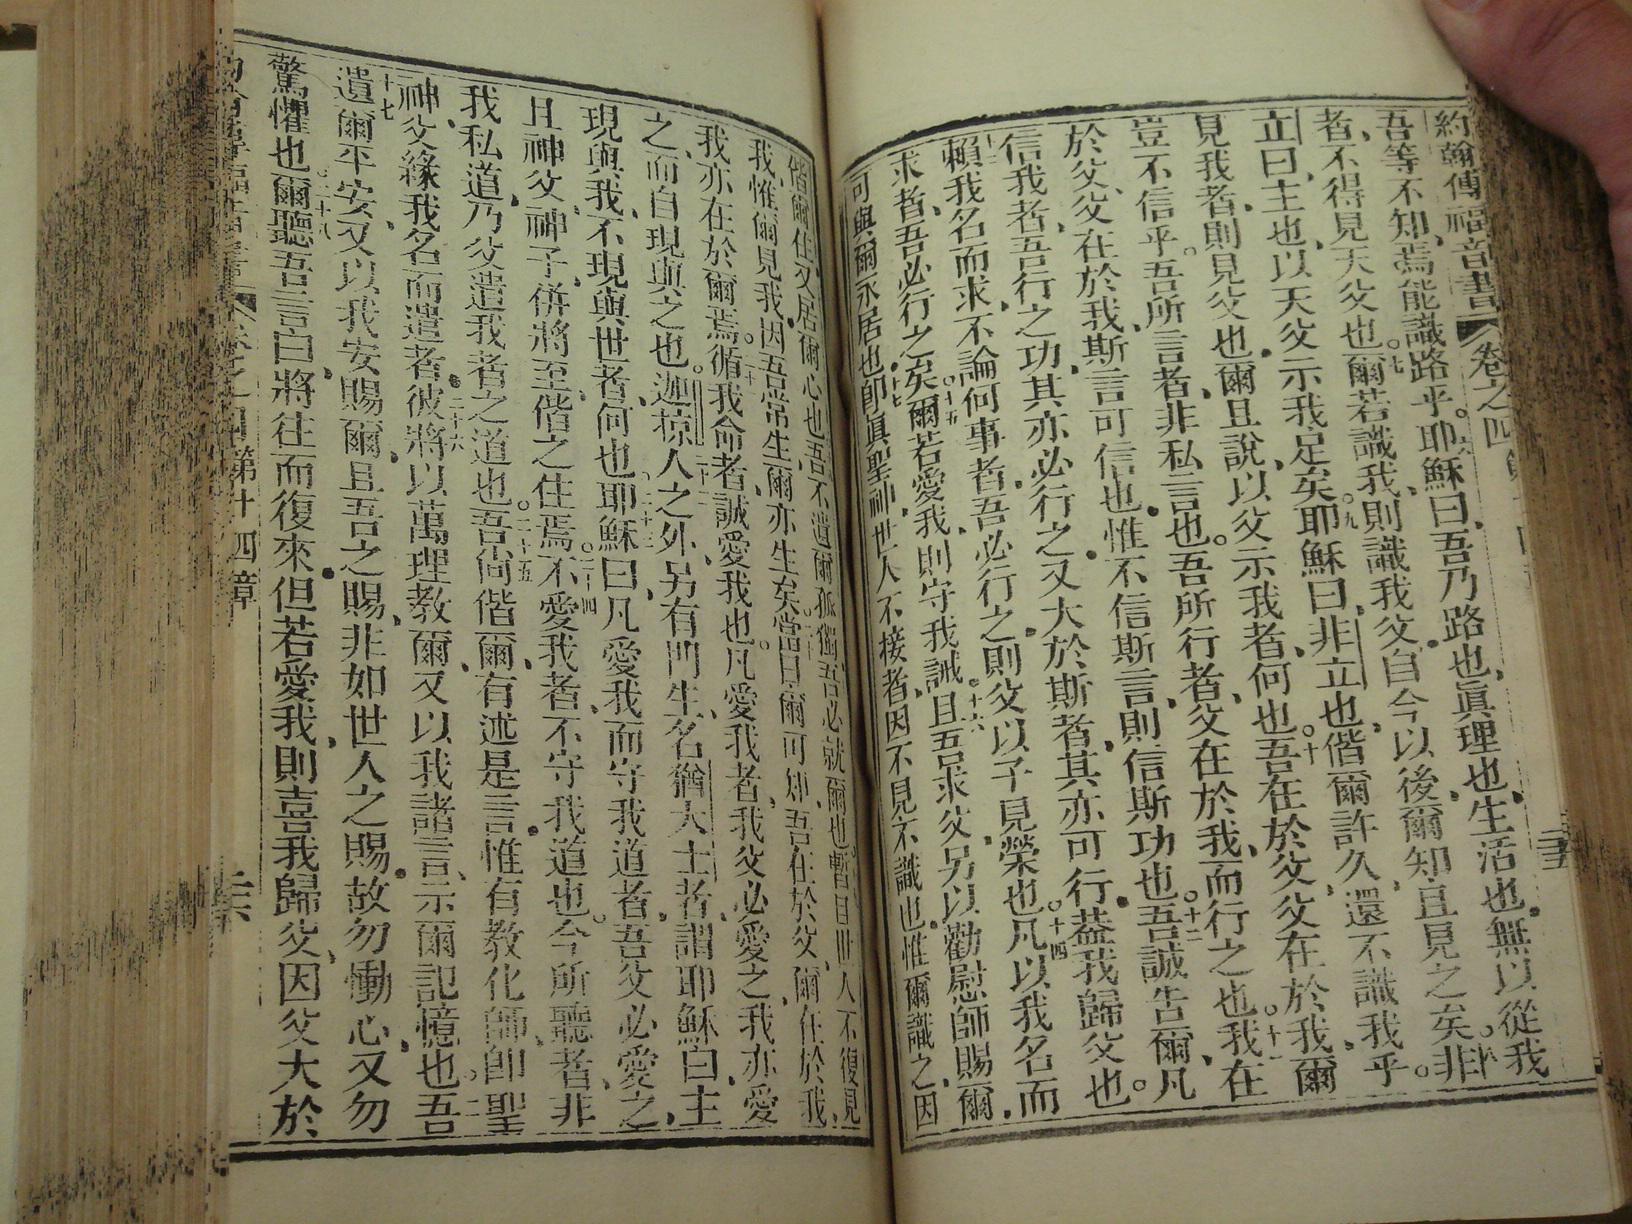 約翰傳福音書 卷之四
吾等不知焉能識路乎耶穌曰吾乃路也眞理也生活也無以從我
者不得見天父也爾若識我則識我父自今以後爾知且見之矣非
立曰主也以天父示我足矣耶穌曰非立也偕爾許久還不識我乎
見我者則見父也爾且說以父示我者何也吾在於父父在於我爾
豈不信乎吾所言者非私言也吾所行者父在於我而行之也我在
於父父在於我斯言可信也惟不信斯言則信斯功也吾誠告爾凡
信我者吾行之功其亦必行之又大於斯者其亦可行葢我歸父也
賴我名而求不論何事者吾必行之則父以子見榮也凡以我名而
求者吾必行之矣爾若愛我則守我誡且吾求父另以勸慰師賜爾
可與爾永居也卽眞聖神世人不接者因不見不識也惟爾識之因
偕爾住又居爾心也吾不遺爾孤獨吾必就爾也暫且世人不復見
我惟爾見我因吾常生爾亦生矣當日爾可知吾在於父爾在於我
我亦在於爾焉循我命者誠愛我也凡愛我者我父必愛之我亦愛
之而自現與之也迦掠人之外另有門生名猶大士者謂耶穌曰主
現與我不現與世者何也耶穌曰凡愛我而守我道者吾父必愛之
且神父神子併將至偕之住焉不愛我者不守我道也今所聽者非
我私道乃父遣我者之道也吾尚偕爾有述是言惟有教化師卽聖
神父緣我名而遣者彼將以萬理教爾又以我諸言示爾記憶也吾
遺爾平安又以我安賜爾且吾之賜非如世人之賜故勿慟心又勿
驚懼也爾聽吾言曰將往而復來但若愛我則喜我歸父因父大於
卷之四 第十四章